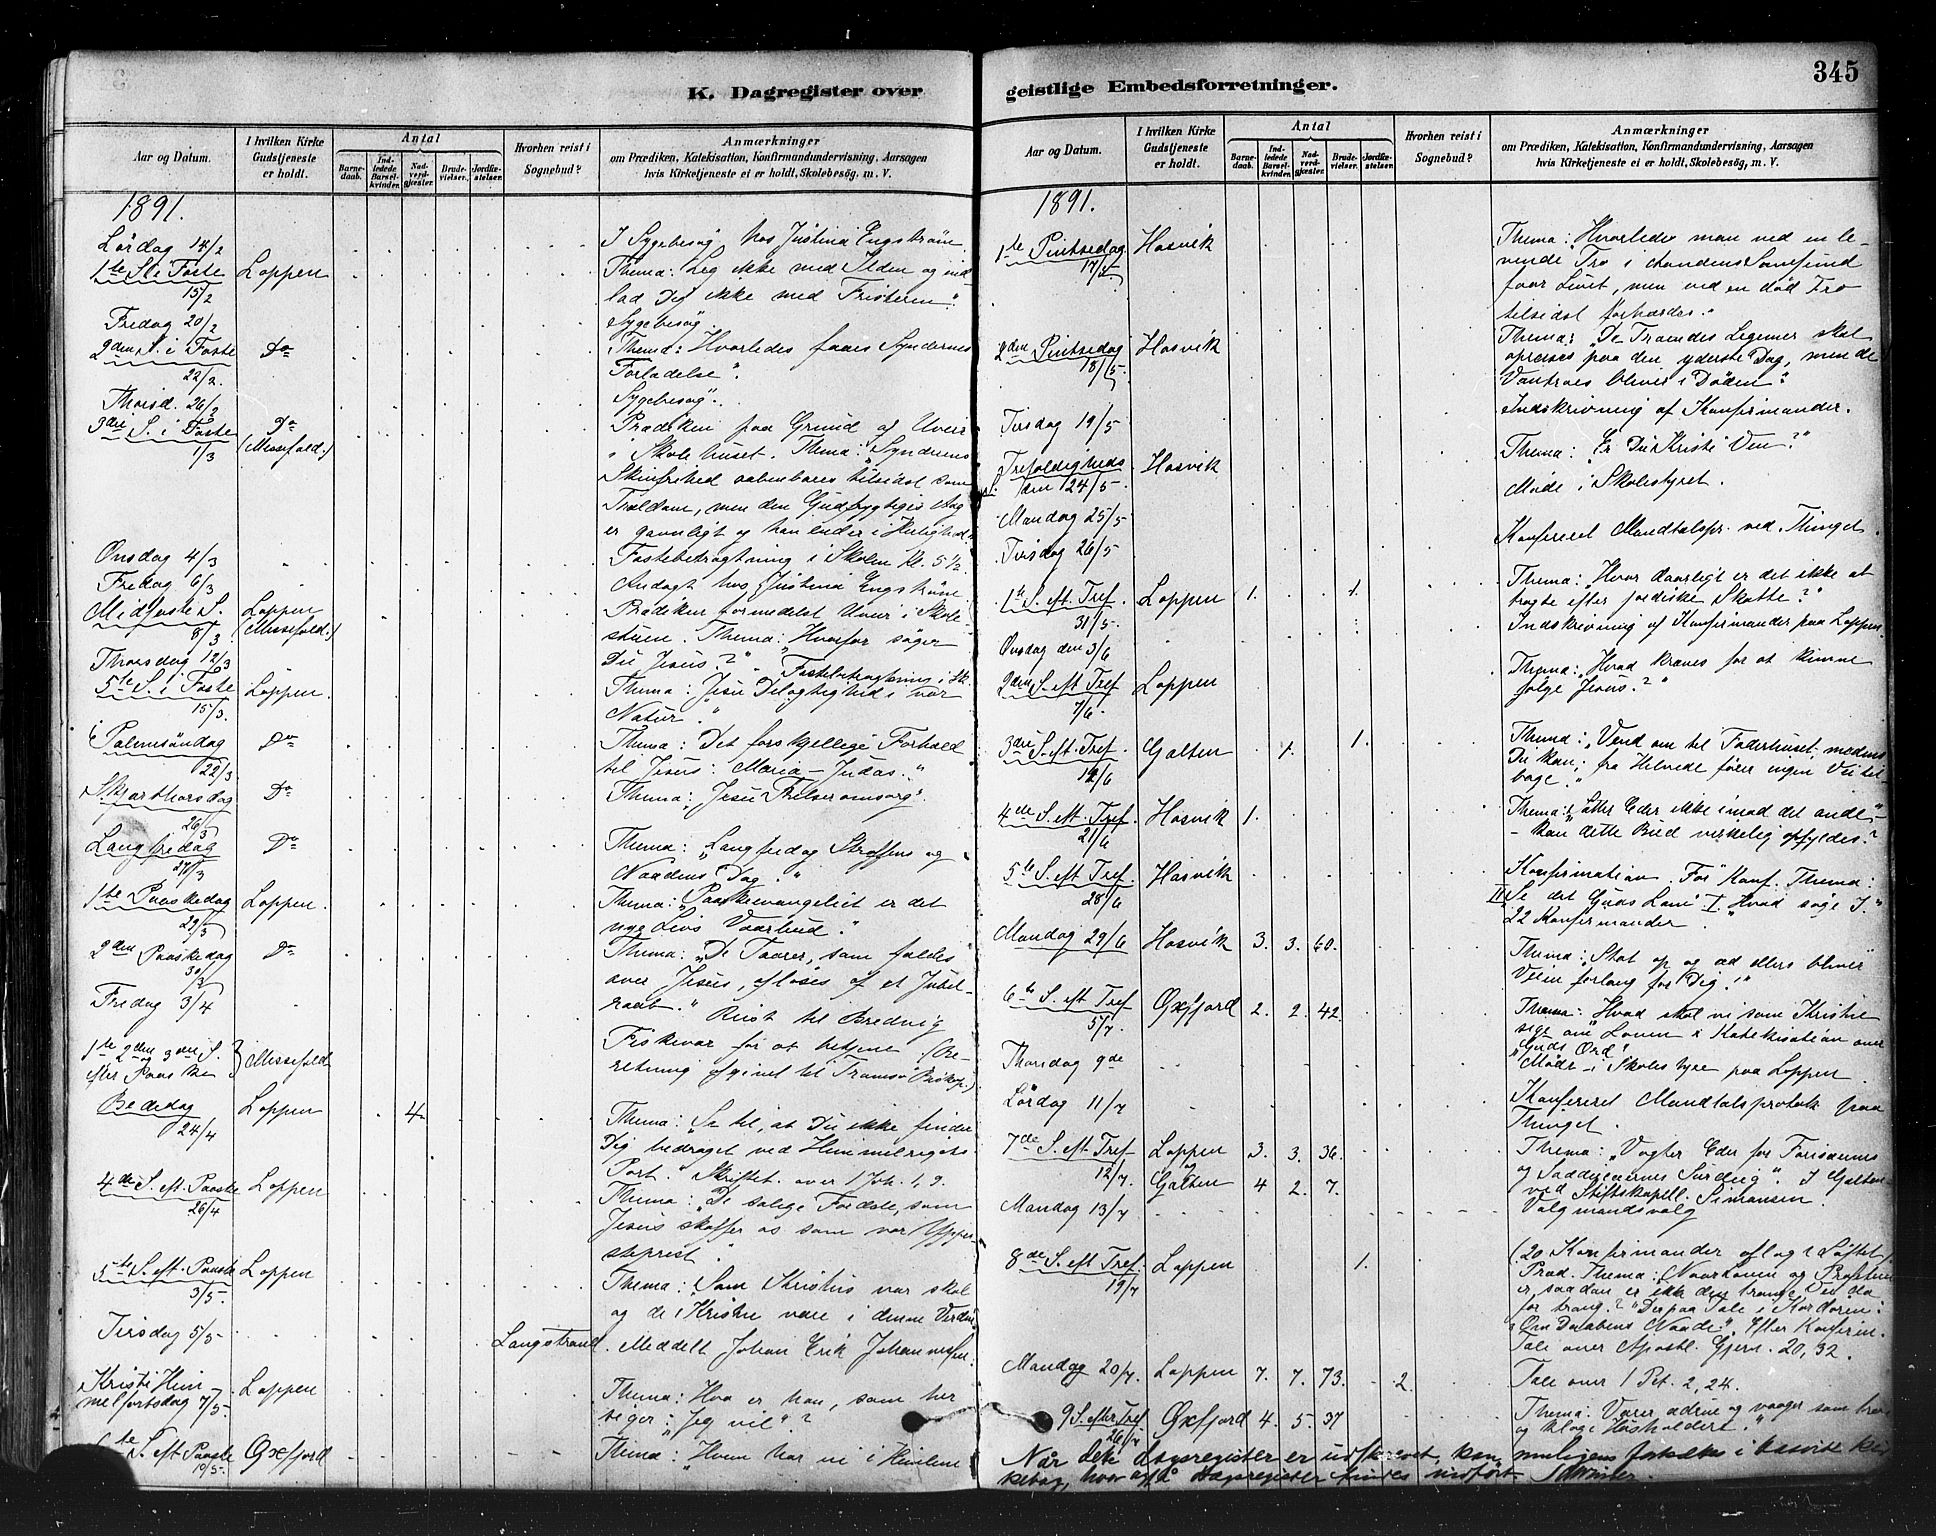 345
K. Dagregister over
geistlige Embedsforretninger.
Aar og Datum.
I hvilken Kirke Gudstjeneste er holdt.
Antal
Barnedaab.
Indledede Barselkvinder.
Nadverdgjester.
Brudevielser.
Jordfæstelser.
Hvorhen reist i Sognebud?
Anmærkninger
om Prædiken, Katekisation, Konfirmandundervisning, Aarsagen
hvis Kirketjeneste ei er holdt, Skolebesög, m. V.
1891.
Lördag 14/2 I Sygebesög hos Justina Engström
1ste S. i Faste Loppen Thema: Leg ikke med Ilden og ind-
15/2 lad Dig ikke med Fristeren".
Fredag 20/2 Sygebesög.
2den S. i Faste Do Thema: Hvorledes faaes Syndernes
22/2. Forladelse".
Thorsd. 26/2 Sygebesög".
3die S. i Faste Do Prædiken paa Grund af Uveir
1/3 (Messefald.) i Skolehuset. Thema: "Synderens
Skinfrihed aabenbares tilsidst som
Trældom, men den Gudfrygtiges Aag
er gavnligt og han ender i Hellighed."
Onsdag 4/3 Fastebetragtning i Skolen Kl. 5 1/2.
Fredag 6/3 Andagt hos Justina Engström
Midfaste S. Loppen Prædiken formedelst Uveir i Skole-
8/3 (Messefald.) stuen. Thema: "Hvorfor söger
Thorsdag 12/3 Du Jesus?" Fastebetragtning i Sk.
5te S. i Faste Loppen. Thema: Jesu Delagtighed i vor
15/3. Natur."
Palmesöndag Do Thema: Det forskjellige Forhold
22/3 til Jesus: Maria - Judas."
Skjærthorsdag Do Thema: "Jesu Frelseromsorg".
26/3
Langfredag Do Thema: "Langfredag Straffens og
27/3 Naadens Dag."
1ste Paaskedag Loppen. Thema: "Paaskeevangeliet er det
29/3 nye Livs Vaarbud."
2den Paaskedag Do Thema: "De Taarer, som fældes
30/3 over Jesus, aflöses af et Jubel-
Fredag 3/4 raab." Reist til Bredvig
Fiskevær for at betjene (Be-
1te 2den og 3die S. Messefald retning afgivet til Tromsö Biskop.)
efter Paaske
Bededag Loppen 4. Thema: "Se til, at Du ikke finder
24/4 Dig bedraget ved Himmelrigets
Port." Skriftet. over 1 Joh. 1, 9.
4de S. eft. Paaske Loppen Thema: "De salige Fordele, som
26/4 Jesus skaffer os som vor Ypper-
stepræst".
5te S. eft. Paaske Loppen Thema: Som Kristus var skal
3/5. og de Kristne være i denne Verden
Tirsdag 5/5 Langstrand. Meddelt Johan Erik Johannessen.
Kristi Him- Loppen Thema: Hva er han, som her
melfartsdag 7/5. siger: "Jeg vil"?
6te S. eft Paaske Oxfjord Thema: "Hvem har vi i Himlene
10/5.
Aar og Datum.
I hvilken Kirke Gudstjeneste er holdt.
Antal
Barnedaab.
Indledede Barselkvinder.
Nadverdgjester.
Brudevielser.
Jordfæstelser.
Hvorhen reist i Sognebud?
Anmærkninger
om Prædiken, Katekisation, Konfirmandundervisning, Aarsagen
hvis Kirketjeneste ei er holdt, Skolebesög, m. V.
1891.
1te Pintsedag Hasvik Thema: "Hvorledes man ved en le-
17/5 vende Tro i Aandens Samfund
faar Livet, men ved en död Tro
tilsidst forhærdes."
2den Pintsedag Hasvik Thema: "De Troendes Legemer skal
18/5. opreises paa den yderste Dag, men de
Vantroes bliver i Döden".
Tirsdag 19/5 Indskrivning af Konfirmander.
Trefoldigheds Hasvik Thema: "Er Du Kristi Ven?"
S. den 24/5. Möde i Skolestyret.
Mandag 25/5
Tirsdag 26/5 Konfereret Mandtalspr. ved Thinget.
1te S. eft. Tref. Loppen 1. 1. Thema: "Hvor daarligt er det ikke at
31/5. tragte efter jordiske Skatte?"
Onsdag den 3/6 Indskrivning af Konfirmander paa Loppen.
2den S. eft Tref Loppen Thema: "Hvad kræves for at kunne
7/6. fölge Jesus?"
3die S. eft. Tref. Galten 1. 1. Thema: "Vend om til Faderhuset, medens
14/6 Du kan; fra Helvede förer ingen Vei til-
bage."
4de S. eft. Tref. Hasvik 1. Thema: "Sætter Eder ikke imod det onde"
21/6 - kan dette Bud virkelig opfyldes?
5te S. eft Tref. Hasvik Konfirmation. För Konf. Thema:
28/6 II "Se det Guds Lam" I. "Hvad söge I."
22 Konfirmander.
Mandag 29/6 Hasvik 3. 3. 60. Thema: "Stat op og æd ellers bliver
Veien forlang for Dig!"
6te S. eft Tref Oxfjord 2. 2. 42. Thema: Hvad skal vi som Kristne
5/7. sige om Loven & Katekisation over
Guds Ord!
Thorsdag 9de Möde i Skolestyre paa Loppen.
Lördag 11/7 Konfereret Mandtalsprotok paa
Thinget.
7de S. eft Tref Loppen 3. 3. 36. Thema: "Vogter Eder for Farisæernes
12/7. og Galten 4 2. 7. og Saddukæernes Surdeig". I Galten
ved Stiftskapell. Simonsen
Mandag 13/7 Valgmandsvalg
8de S. eft Tref. Loppen 1. (20 Konfirmander aflagt Löftet.)
19/7 Præd. Thema: "Naar Loven og Profeterne
er, saadan er ikke den trange Vei da
for trang?" Derpaa Tale i Kordören:
"Om Daabens Naade". Efter Konfirm.
Tale over Apostl. Gjern. 20, 32.
Mandag 20/7. Loppen 7. 7. 73. 2. Tale over 1 Pet. 2, 24.
9 S. efter Tref Oxfjord 4. 5. 37 Thema: Værer ædrue og vaager som tro
26/7 og kloge Husholdere."
Når dette dagsregister er udskrevet, kan muligens findes i Hasvik kir-
kebog, hvor også dagsregister findes indfört.